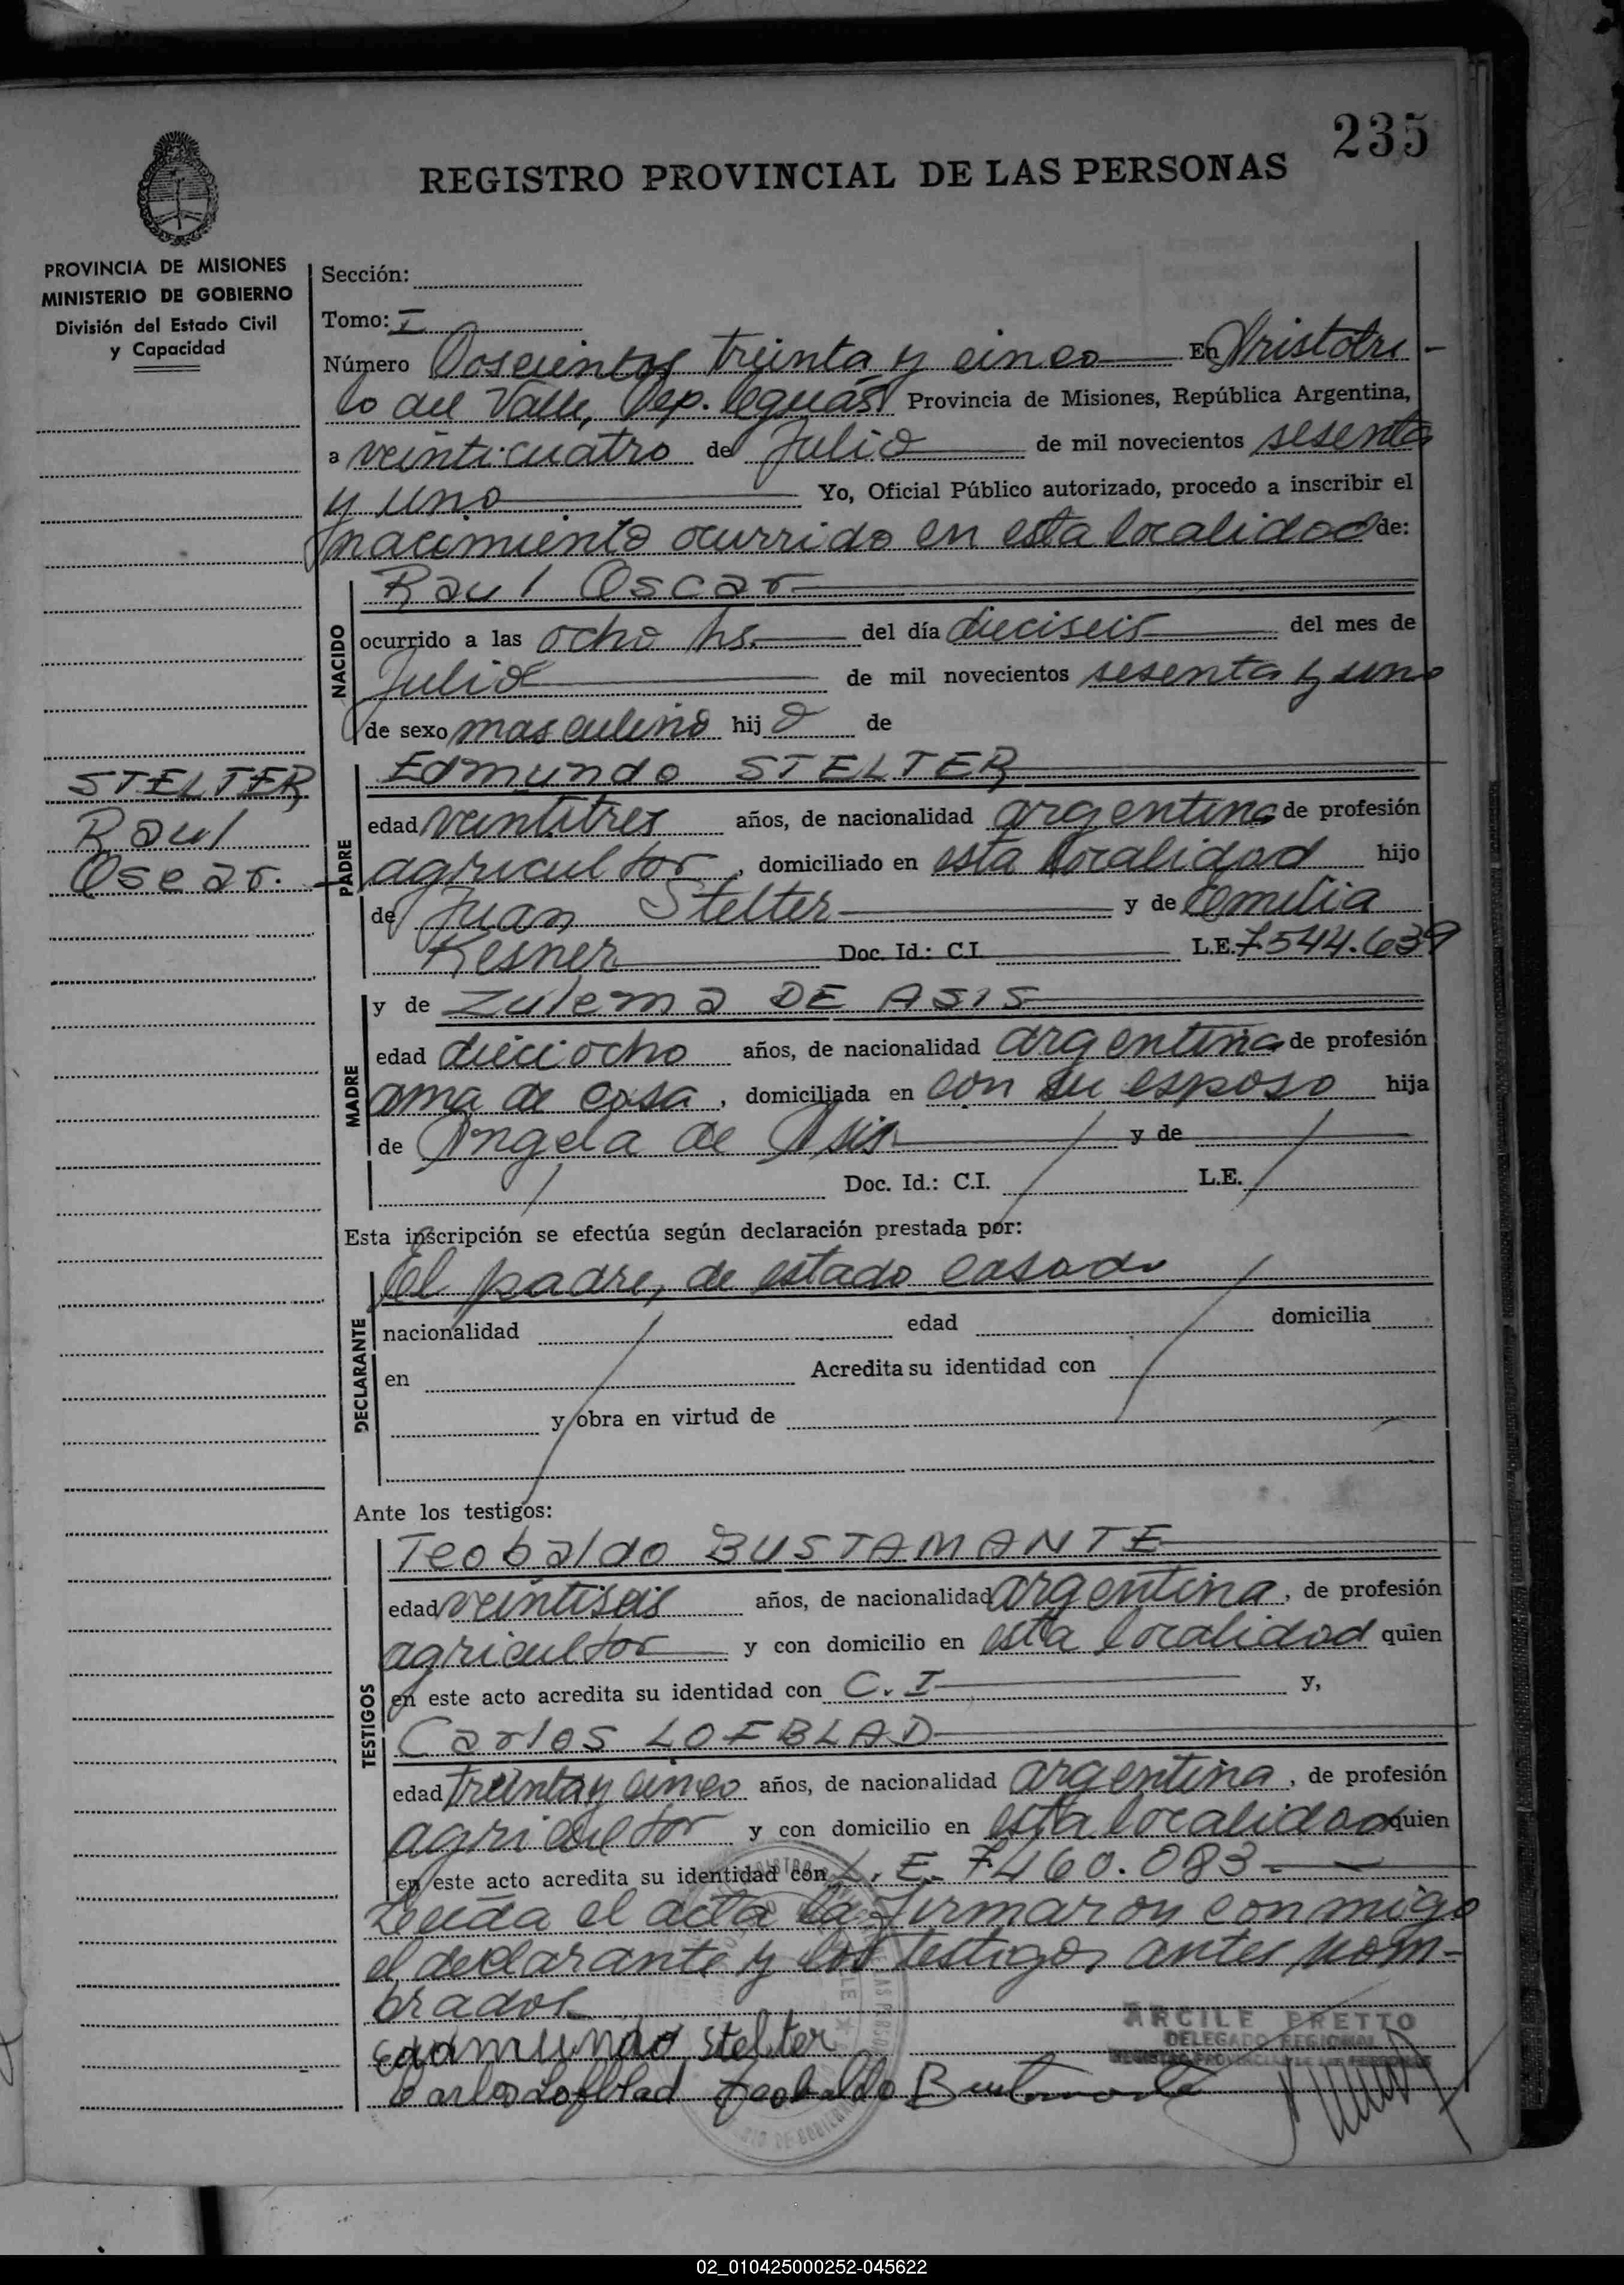 235
REGISTRO PROVINCIAL DE LAS PERSONAS
PROVINCIA DE MISIONES
MINISTERIO DE GOBIERNO
División del Estado Civil
y Capacidad
Sección:
Tomo: I
Número Doscientos treinta y cinco En Aristóbu-
lo del Valle, Dep. Cguás Provincia de Misiones, República Argentina,
a veinticuatro de Julio de mil novecientos sesenta
y uno Yo, Oficial Público autorizado, procedo a inscribir el
nacimiento ocurrido en esta localidad de:
NACIDO
Raul Oscar
ocurrido a las ocho hs. del día dieciseis del mes de
Julio de mil novecientos sesenta y uno
de sexo masculino hijo de
STELTER
Raul
Oscar.
PADRE
Edmundo STELTER
edad veintitres años, de nacionalidad argentina de profesión
agricultor, domiciliado en esta localidad hijo
de Juan Stelter y de Emilia
Kesner Doc. Id.: C.I. L.E. 7544.639
MADRE
y de Zulema DE ASIS
edad dieciocho años, de nacionalidad argentina de profesión
ama de casa, domiciliada en con su esposo hija
de Angela de Asis y de
Doc. Id.: C.I. L.E.
Esta inscripción se efectúa según declaración prestada por:
DECLARANTE
El padre, de estado casado
nacionalidad edad domicilia
en Acredita su identidad con
y obra en virtud de
Ante los testigos:
TESTIGOS
Teobaldo BUSTAMANTE
edad veintiseis años, de nacionalidad argentina, de profesión
agricultor y con domicilio en esta localidad quien
en este acto acredita su identidad con C. I y,
Carlos LOFBLAD
edad treinta y cinco años, de nacionalidad argentina, de profesión
agricultor y con domicilio en esta localidad quien
en este acto acredita su identidad con L. E. 7460.083.-
Leída el acta la firmaron conmigo
el declarante y los testigos antes nom-
brados
ARCILE PRETTO
DELEGADO REGIONAL
REGISTRO PROVINCIAL DE LAS PERSONAS
Edmundo Stelter
Carlos Lofblad Teobaldo Bustamante
02_010425000252-045622